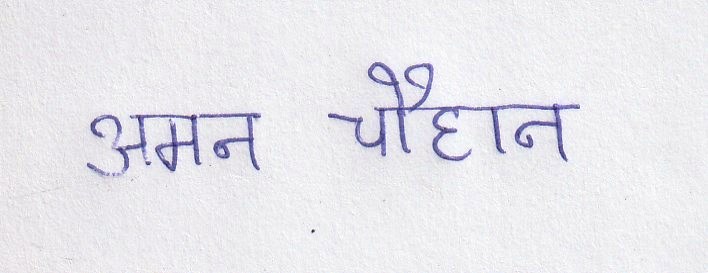 अमन चौहान